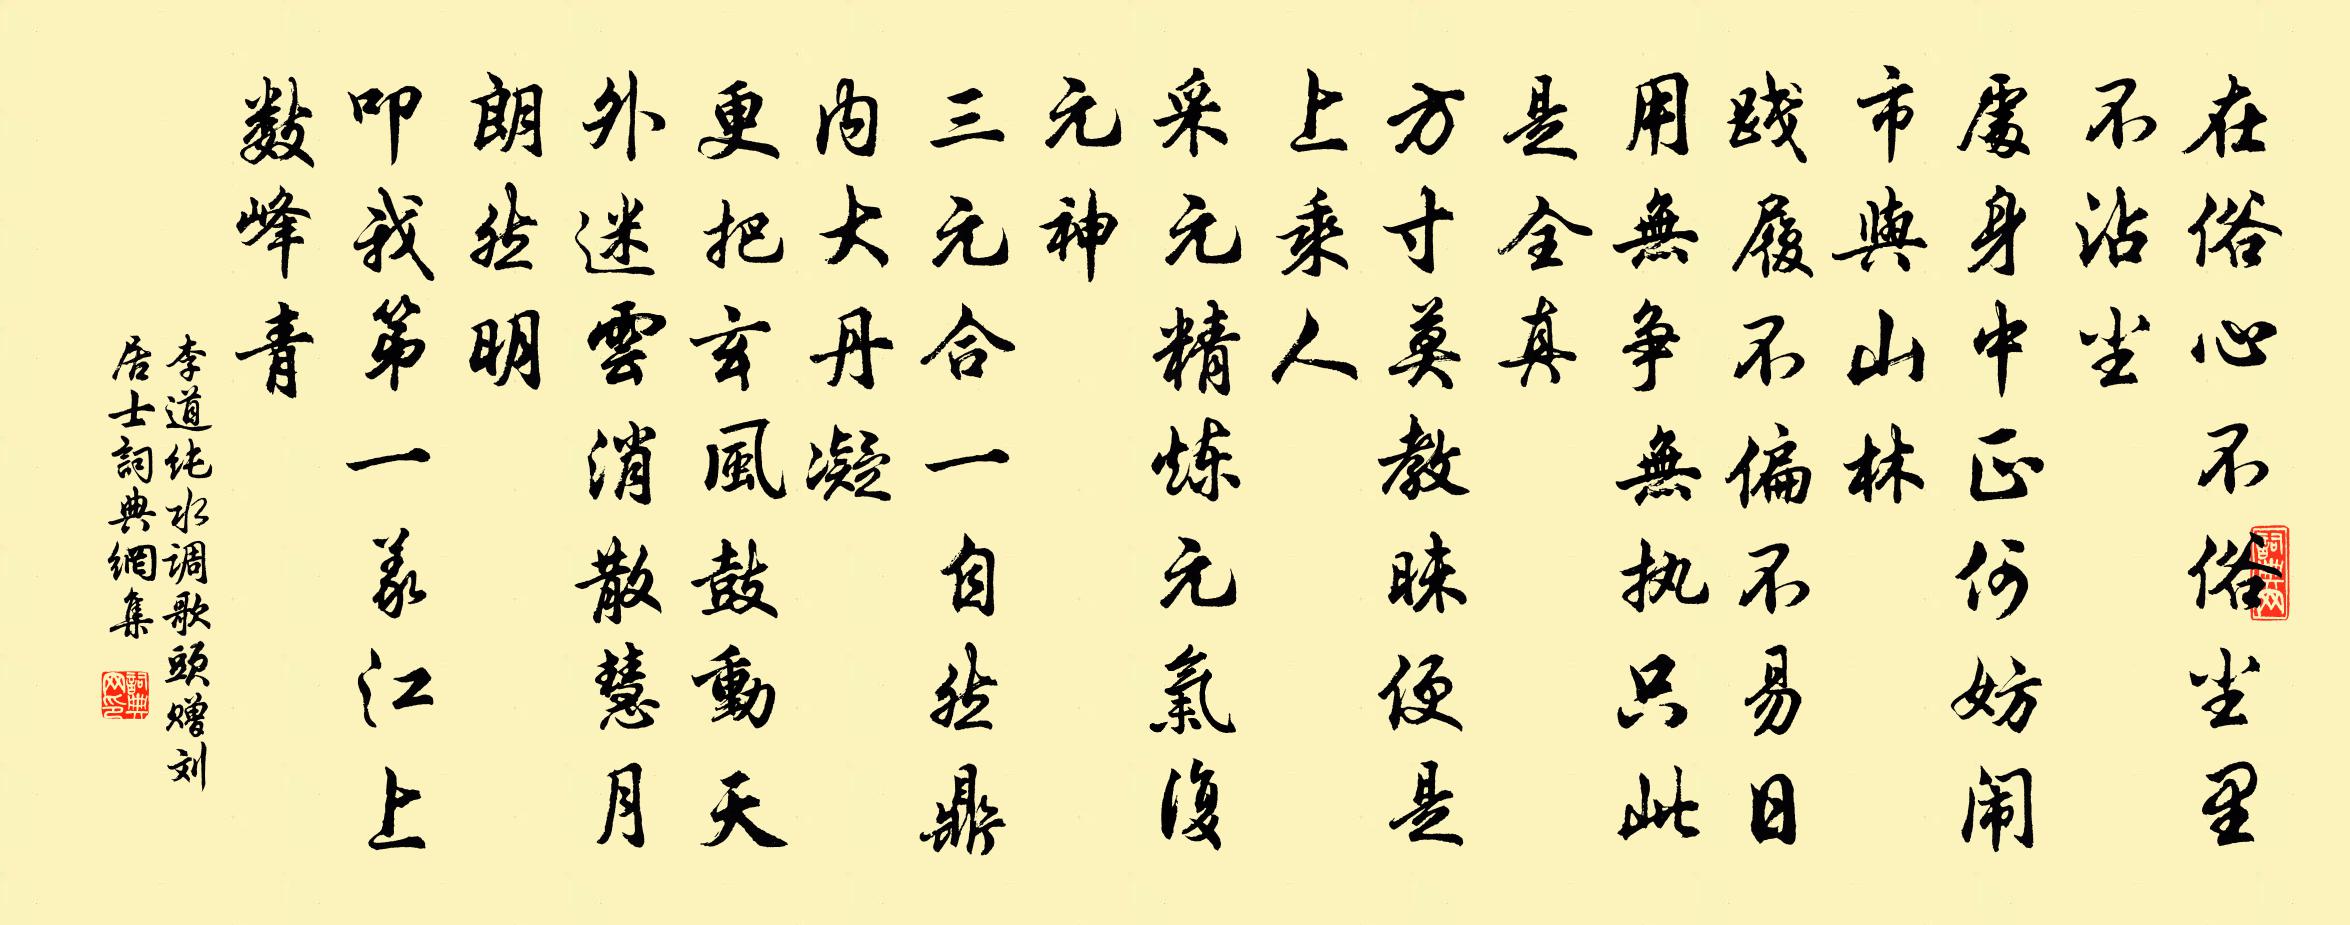 在俗心不俗尘里
不沾尘
處身中正何妨闹
市與山林
践履不偏不易日
用無争無执只此
是全真
方寸莫教昧便是
上乘人
采元精炼元氣復
元神
三元合一自然鼎
内大丹凝
更把玄風鼓動天
外迷雲消散慧月
朗然明
叩我第一义江上
数峰青
李道纯水调歌頭赠刘
居士詞典網集
詞典网
詞典网印